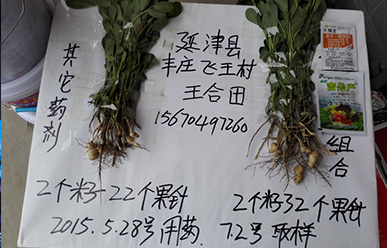 延津县
丰庄飞王村
王合田
15670497260
其它药剂
组合
2个籽-22个果针
2个籽32个果针
2015.5.28号用药
7.2号取样